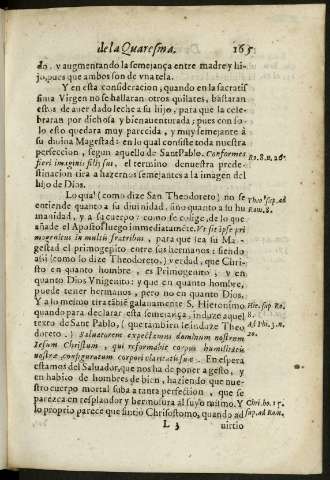 de la Quaresma. 165
do, y augmentando la semejança entre madre y hi-
jo, pues que ambos son de vna tela.
Y en esta consideracion, quando en la sacratis
sima Virgen no se hallaran otros quilates, bastaran
estos de auer dado leche a su hijo, para que la cele-
braran por dichosa y bienauenturada; pues con so-
lo esto quedara muy parecida, y muy semejante à
su diuina Magestad: en lo qual consiste toda nuestra
perfeccion, segun aquello de Sant Pablo. Conformes
fieri imaginis filij sui, el termino denuestra prede-
stinacion tira a hazernos semejantes a la imagen del
hijo de Dios.
Ro. 8. n. 26.
Lo qual (como dize San Theodoreto) no se
entiende quanto a su diuinidad, sino quanto a su hu
manidad, y a su cuerpo: como se colige, de lo que
añade el Apostol luego immediatamēte. Vt sit ipse pri
mogenitus in multis fratribus, para que sea su Ma-
gestad el primogenito entre sus hermanos: siendo
assi (como lo dize Theodoreto) verdad, que Chri-
sto en quanto hombre, es Primogenito; y en
quanto Dios Vnigenito: y que en quanto hombre,
puede tener hermanos, pero no en quanto Dios.
Theo. sup. ad
Rom. 8.
Y a lo mesmo tira tābiē galanamente S. Hieronimo
quando para declarar esta semejança, induze aquel
texto de Sant Pablo, (que tambien le induze Theo
doreto.) Saluatorem expectamus dominum nostrum
Iesum Christum, qui reformabit corpus humilitatis
nostræ configuratum corpori claritatis suæ. En espera
estamos del Saluador, que nos ha de poner a gesto, y
en habito de hombres de bien, haziendo que nue-
stro cuerpo mortal suba a tanta perfection, que se
parezca en resplandor y hermosura al suyo mismo. Y
lo proprio parece que sintio Chrisostomo, quando ad
Hie. sup. Ro.
8.
Ad Phi. 3. n.
20.
Chri. ho. 15.
sup. ad Rom.
L 3 uirtio